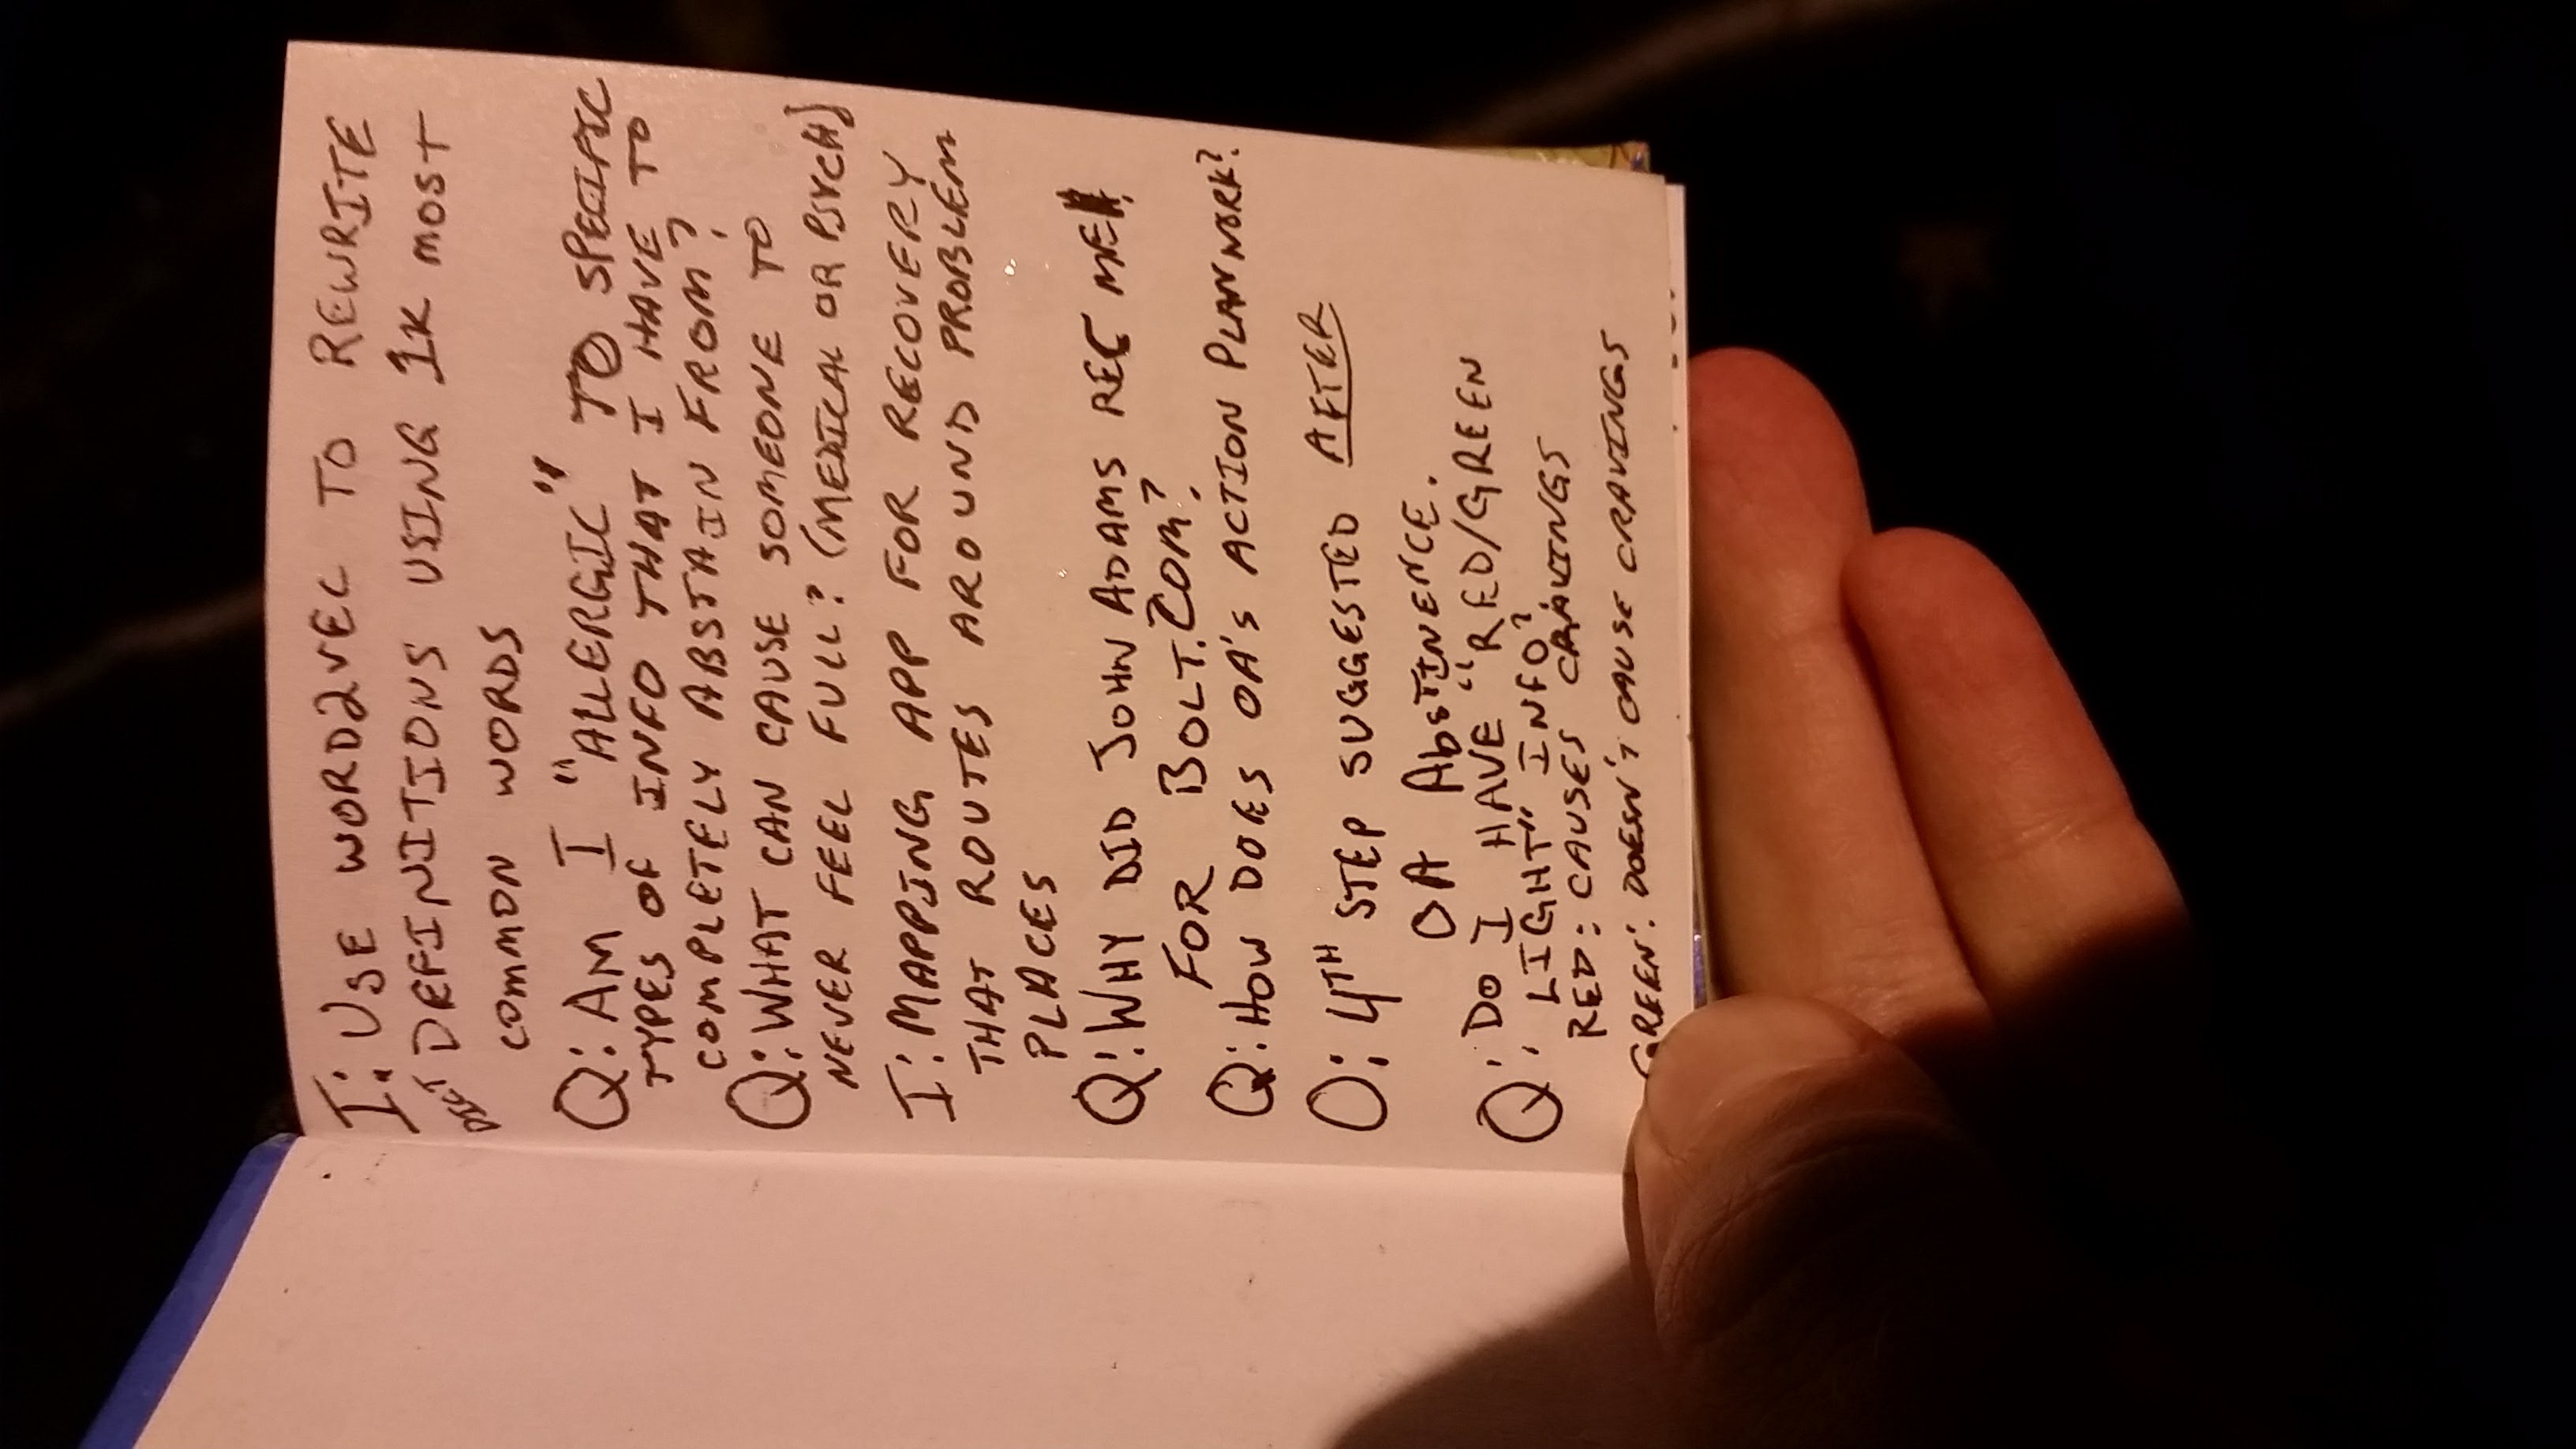 I: USE WORD2VEC TO REWRITE
DICT DEFINITIONS USING 1K MOST
COMMON WORDS
Q: AM I "ALLERGIC" TO SPECIFIC
TYPES OF INFO THAT I HAVE TO
COMPLETELY ABSTAIN FROM?
Q: WHAT CAN CAUSE SOMEONE TO
NEVER FEEL FULL? (MEDICAL OR PSYCH)
I: MAPPING APP FOR RECOVERY
THAT ROUTES AROUND PROBLEM
PLACES
Q: WHY DID JOHN ADAMS REC ME
FOR BOLT.COM?
Q: HOW DOES OA'S ACTION PLAN WORK?
O: 4TH STEP SUGGESTED AFTER
OA AbSTINENCE.
Q: DO I HAVE "RED/GREEN
LIGHT" INFO?
RED: CAUSES CRAVINGS
GREEN: DOESN'T CAUSE CRAVINGS